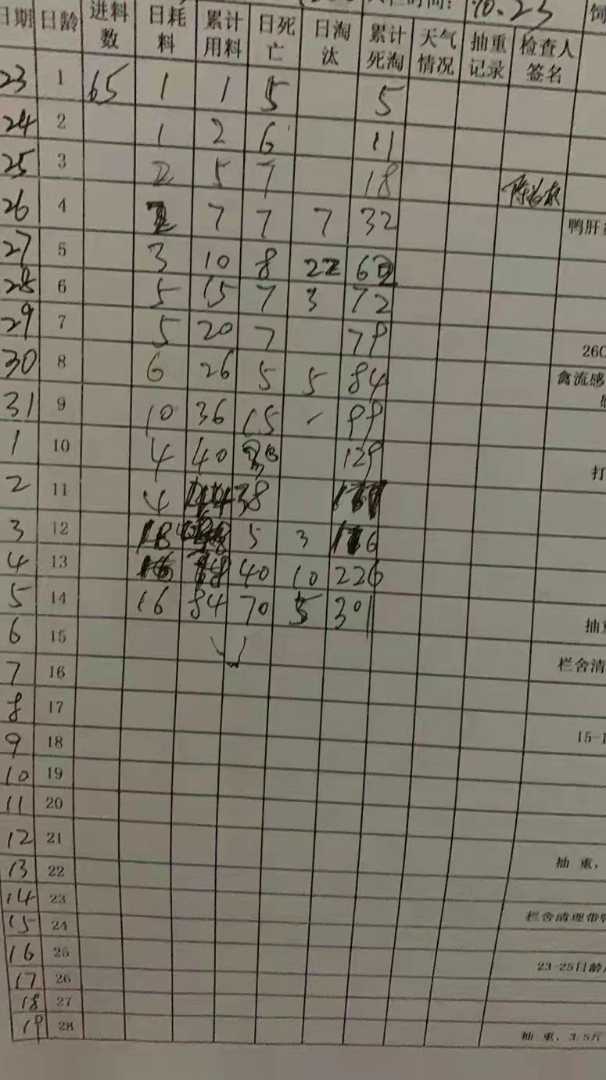 入栏时间: 10.23
日期 日龄 进料数 日耗料 累计用料 日死亡 日淘汰 累计死淘 天气情况 抽重记录 检查人签名
23 1 65 1 1 5 5
24 2 1 2 6 11
25 3 2 5 7 18
26 4 2 7 7 7 32 鸭肝
27 5 3 10 8 22 62
28 6 5 15 7 3 72
29 7 5 20 7 79 260
30 8 6 26 5 5 84 禽流感
31 9 10 36 15 - 99
1 10 4 40 30 129 打
2 11 4 44 38
3 12 18 5 3
4 13 16 40 10 226
5 14 16 84 70 5 301 抽
6 15 栏舍清
7 16
8 17 15-1
9 18
10 19
11 20
12 21 抽 重,
13 22
14 23 栏舍清理带
15 24
16 25 23-25日龄
17 26
18 27
19 28 抽 重, 3.5斤